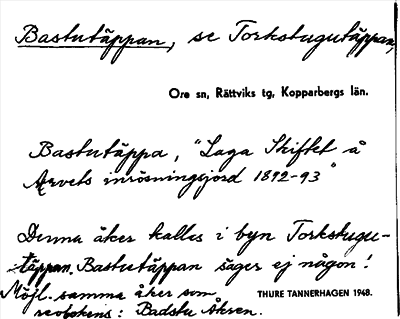 Bastutäppan, se Torkstugutäppan,
Ore sn, Rättviks tg, Kopparbergs län.
Bastutäppa, "Laga Skiftet å
Arvets inrösningsjord 1892-93"
Denna åker kallas i byn Torkstugu-
täppan. Bastutäppan säger ej någon!
Möjl. samma åker som
: Badstu Åkren.
THURE TANNERHAGEN 1948.